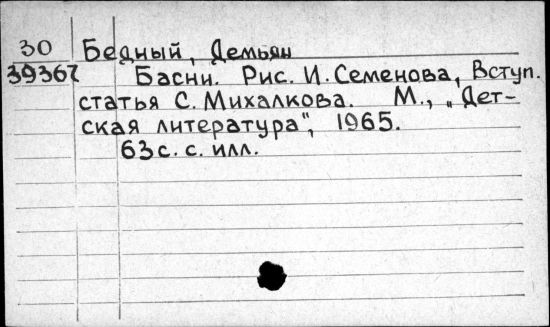 30 Бедный, Демьян
39367 Басни. Рис. И. Семенова, Вступ.
статья С. Михалкова. М., „Дет-
ская литература", 1965.
63 с. с илл.